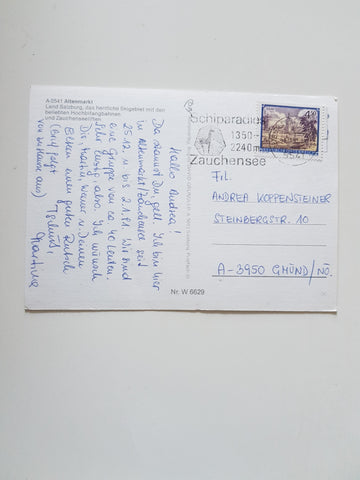 A-5541 Altenmarkt
Land Salzburg, das herrliche Skigebiet mit den
beliebten Hochbifangbahnen
und Zauchenseeliften
Hallo Andrea!
Da staunst Du gell. Ich bin hier
in Altenmarkt/Zauchensee seit
25.12. bis 2.1.91. Wir sind
eine Gruppe von ca 40 Leuten.
Sehr lustig also. Ich wünsch
Dir, Martin, und Deinen
Eltern einen guten Rutsch
(Brief folgt
von zu Hause aus) Tschüß,
Martina
Nr. W 6629
Schiparadies
1350-
2240m
Zauchensee
5541
Frl.
ANDREA KOPPENSTEINER
STEINBERGSTR. 10
A-3950 GMÜND/NÖ.